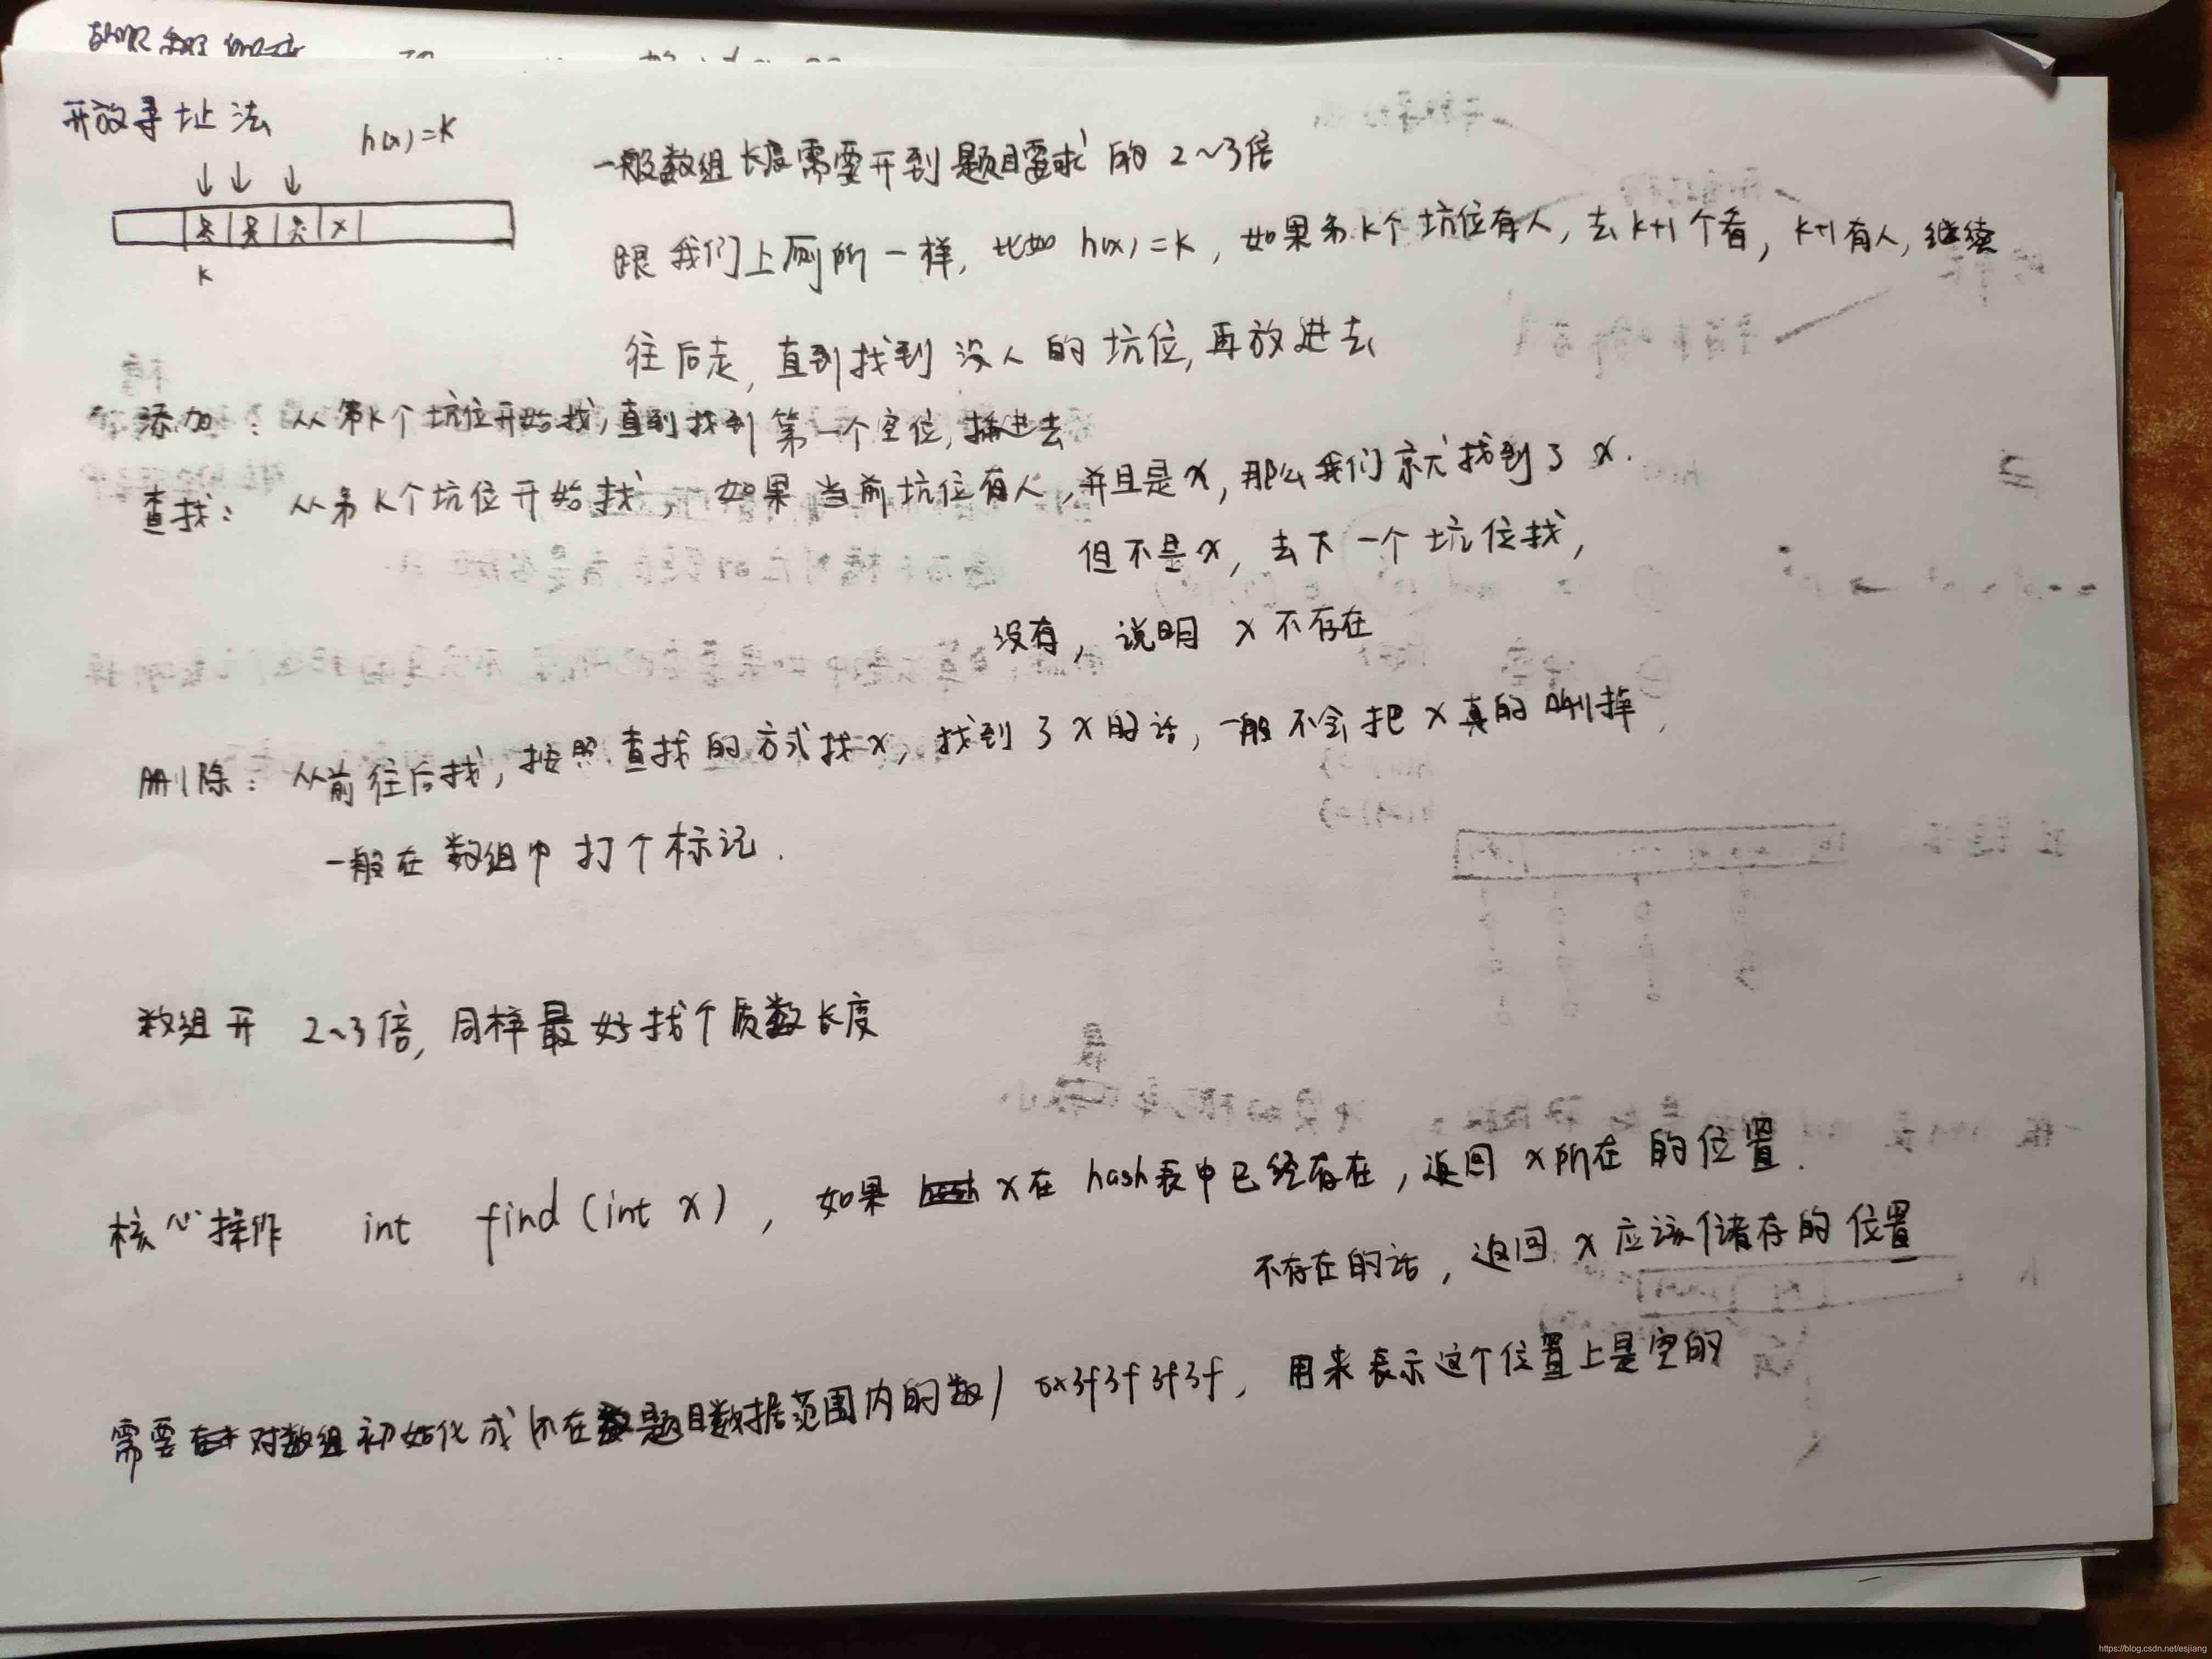 开放寻址法
h(x)=k
一般数组长度需要开到题目要求的2~3倍
跟我们上厕所一样, 比如 h(x)=k, 如果第k个坑位有人, 去k+1个看, k+1有人, 继续
往后走, 直到找到没人的坑位, 再放进去
k
x
添加: 从第k个坑位开始找, 直到找到第一个空位, 插进去
查找: 从第k个坑位开始找, 如果当前坑位有人, 并且是x, 那么我们就找到了x.
但不是x, 去下一个坑位找,
没有, 说明x不存在
删除: 从前往后找, 按照查找的方式找x, 找到了x的话, 一般不会把x真的删掉,
一般在数组中打个标记.
数组开 2~3倍, 同样最好找个质数长度
核心操作 int find(int x), 如果 x在hash表中已经存在, 返回x所在的位置.
不存在的话, 返回x应该储存的位置
需要对数组初始化成不在题目数据范围内的数/0x3f3f3f3f, 用来表示这个位置上是空的
https://blog.csdn.net/esjiang